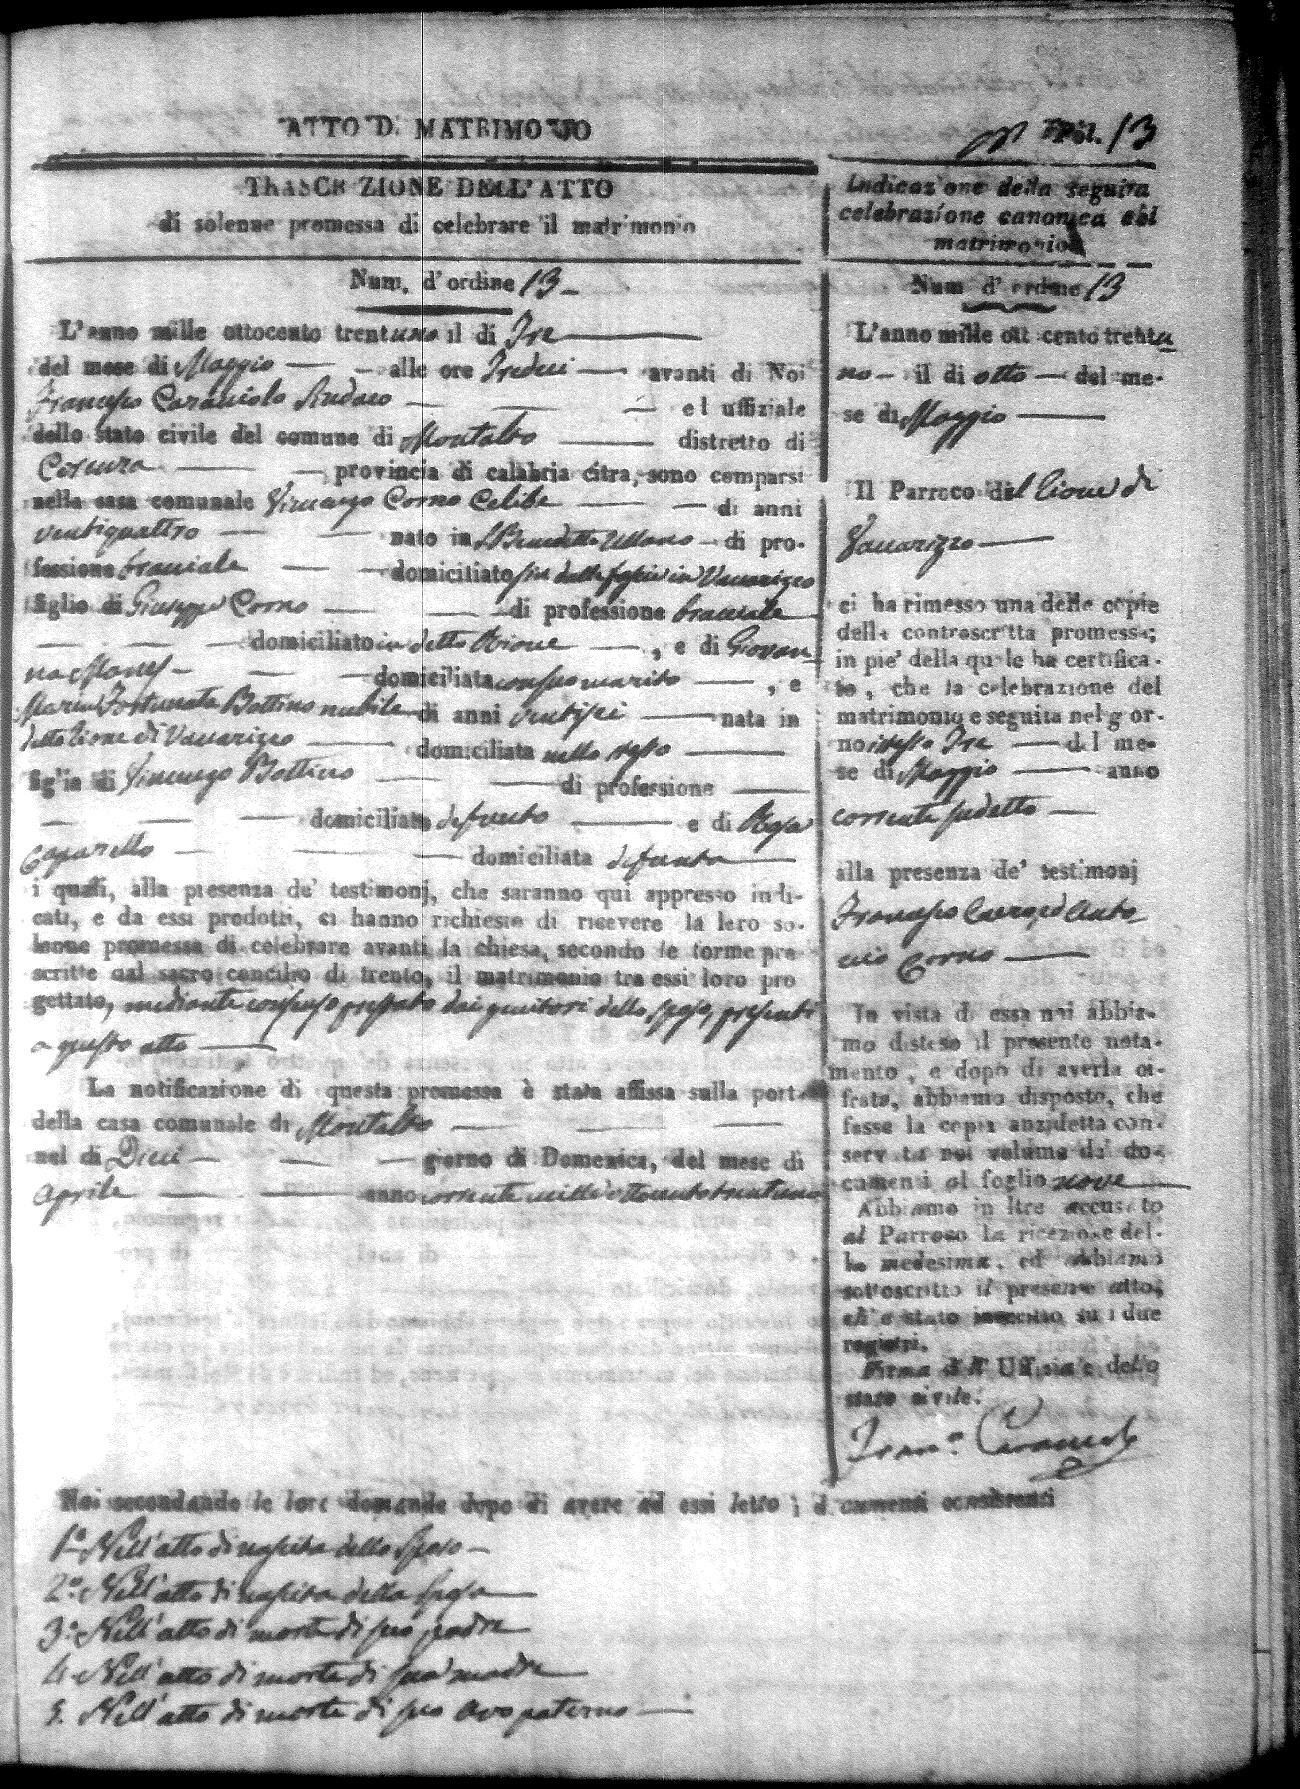 ATTO DI MATRIMONIO
Fol. 13
TRASCRIZIONE DELL'ATTO
di solenne promessa di celebrare il matrimonio
Num. d'ordine 13
L'anno mille ottocento trentuno il di Tre
del mese di Maggio alle ore Tredeci avanti di Noi
Francesco Caraciolo Sindaco ed uffiziale
dello stato civile del comune di Montalto distretto di
Cosenza provincia di calabria citra, sono comparsi
nella casa comunale Vincenzo Corno Celibe di anni
ventiquattro nato in S. Benedetto Ullano di pro-
fessione bracciale domiciliato sin dalle fascie in Vaccarizzo
figlio di Giuseppe Corno di professione bracciale
domiciliato in detto Rione , e di Giovan
na domiciliata con suo marito , e
Maria Fortunata Bottino nubile di anni ventisei nata in
detto Rione di Vaccarizzo domiciliata nello stesso
figlia di Vincenzo Bottino di professione
domiciliato defunto e di Rosa
Caparello domiciliata defunta
i quali, alla presenza de' testimonj, che saranno qui appresso indi-
cati, e da essi prodotti, ci hanno richiesto di ricevere la loro so-
lenne promessa di celebrare avanti la chiesa, secondo le forme pre-
scritte dal sacro concilio di trento, il matrimonio tra essi loro pro
gettato, mediante consenso prestato dai genitori dello sposo, presenti
a questo atto
La notificazione di questa promessa è stata affissa sulla porta
della casa comunale di Montalto
nel di Dieci giorno di Domenica, del mese di
Aprile anno corrente mille ottocento trentuno
Indicazione della seguita
celebrazione canonica del
matrimonio
Num d'ordine 13
L'anno mille ott cento trentu
no il di otto del me-
se di Maggio
Il Parroco del Rione di
Vaccarizzo
ci ha rimesso una delle copie
della controscritta promessa;
in pie' della quale ha certifica-
to, che la celebrazione del
matrimonio e seguita nel g or-
no istesso Tre del me-
se di Maggio anno
corrente sudetto
alla presenza de' testimonj
Francesco ed Anto
nio Corno
In vista di essa noi abbia-
mo disteso il presente nota-
mento, e dopo di averla ci-
frata, abbiamo disposto, che
fosse la copia anzidetta con-
servata nel volume de' do-
camenti al foglio nove
Abbiamo in ltre accusato
al Parroco la ricezione del-
la medesima, ed abbiamo
sottoscritto il presente atto,
ch'è stato inscritto su i due
registri.
Firma dell' Uffiziale dello
stato civile.
Fran.o Caracciolo
Noi secondando le loro domande dopo di avere ad essi letto i documenti consistenti
1.o Nell'atto di nascita dello sposo
2.o Nell'atto di nascita della sposa
3.o Nell'atto di morte di suo padre
4. Nell'atto di morte di sua madre
5. Nell'atto di morte di suo avo paterno